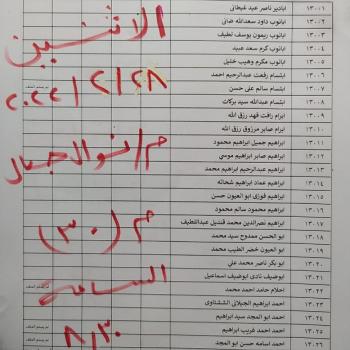 ١٣٠٠١ ابادير ناصر عبد غبطاني
١٣٠٠٢ ابانوب داود سعدالله ضاني
١٣٠٠٣ ابانوب ريمون يوسف لطيف
١٣٠٠٤ ابانوب كرم سعد عبيد
١٣٠٠٥ ابانوب مكرم وهيب خليل
١٣٠٠٦ ابتسام رفعت عبدالرحيم احمد
١٣٠٠٧ ابتسام سالم على حسن
١٣٠٠٨ ابتسام عبدالله سيد بركات
١٣٠٠٩ ابرام رافت فهد رزق الله
١٣٠١٠ ابرام صابر مرزوق رزق الله
١٣٠١١ ابراهيم جميل ابراهيم محمود
١٣٠١٢ ابراهيم صابر ابراهيم موسى
١٣٠١٣ ابراهيم عبدالرحيم ابراهيم محمد
١٣٠١٤ ابراهيم عماد ابراهيم شحاته
١٣٠١٥ ابراهيم فوزى ابو العيون حسن
١٣٠١٦ ابراهيم محمود سالم محمود
١٣٠١٧ ابراهيم نصرالدين محمد قنديل عبداللطيف
١٣٠١٨ ابو الحسن ممدوح سيد محمد
١٣٠١٩ ابو العيون خضر الطيب محمد
١٣٠٢٠ ابو بكر ناصر محمد على
١٣٠٢١ ابوضيف نادى ابوضيف اسماعيل
١٣٠٢٢ احلام حامد احمد محمد
١٣٠٢٣ احمد ابراهيم الجيلانى الششتاوى
١٣٠٢٤ احمد ابو المجد سيد ابراهيم
١٣٠٢٥ احمد احمد غريب ابراهيم
١٣٠٢٦ احمد اسامه حسن ابو المجد
الاثنين
٢٨/٢/٢٠٢٢
م/نوال جمال
م (٣٠)
الساعة
٨/٣٠